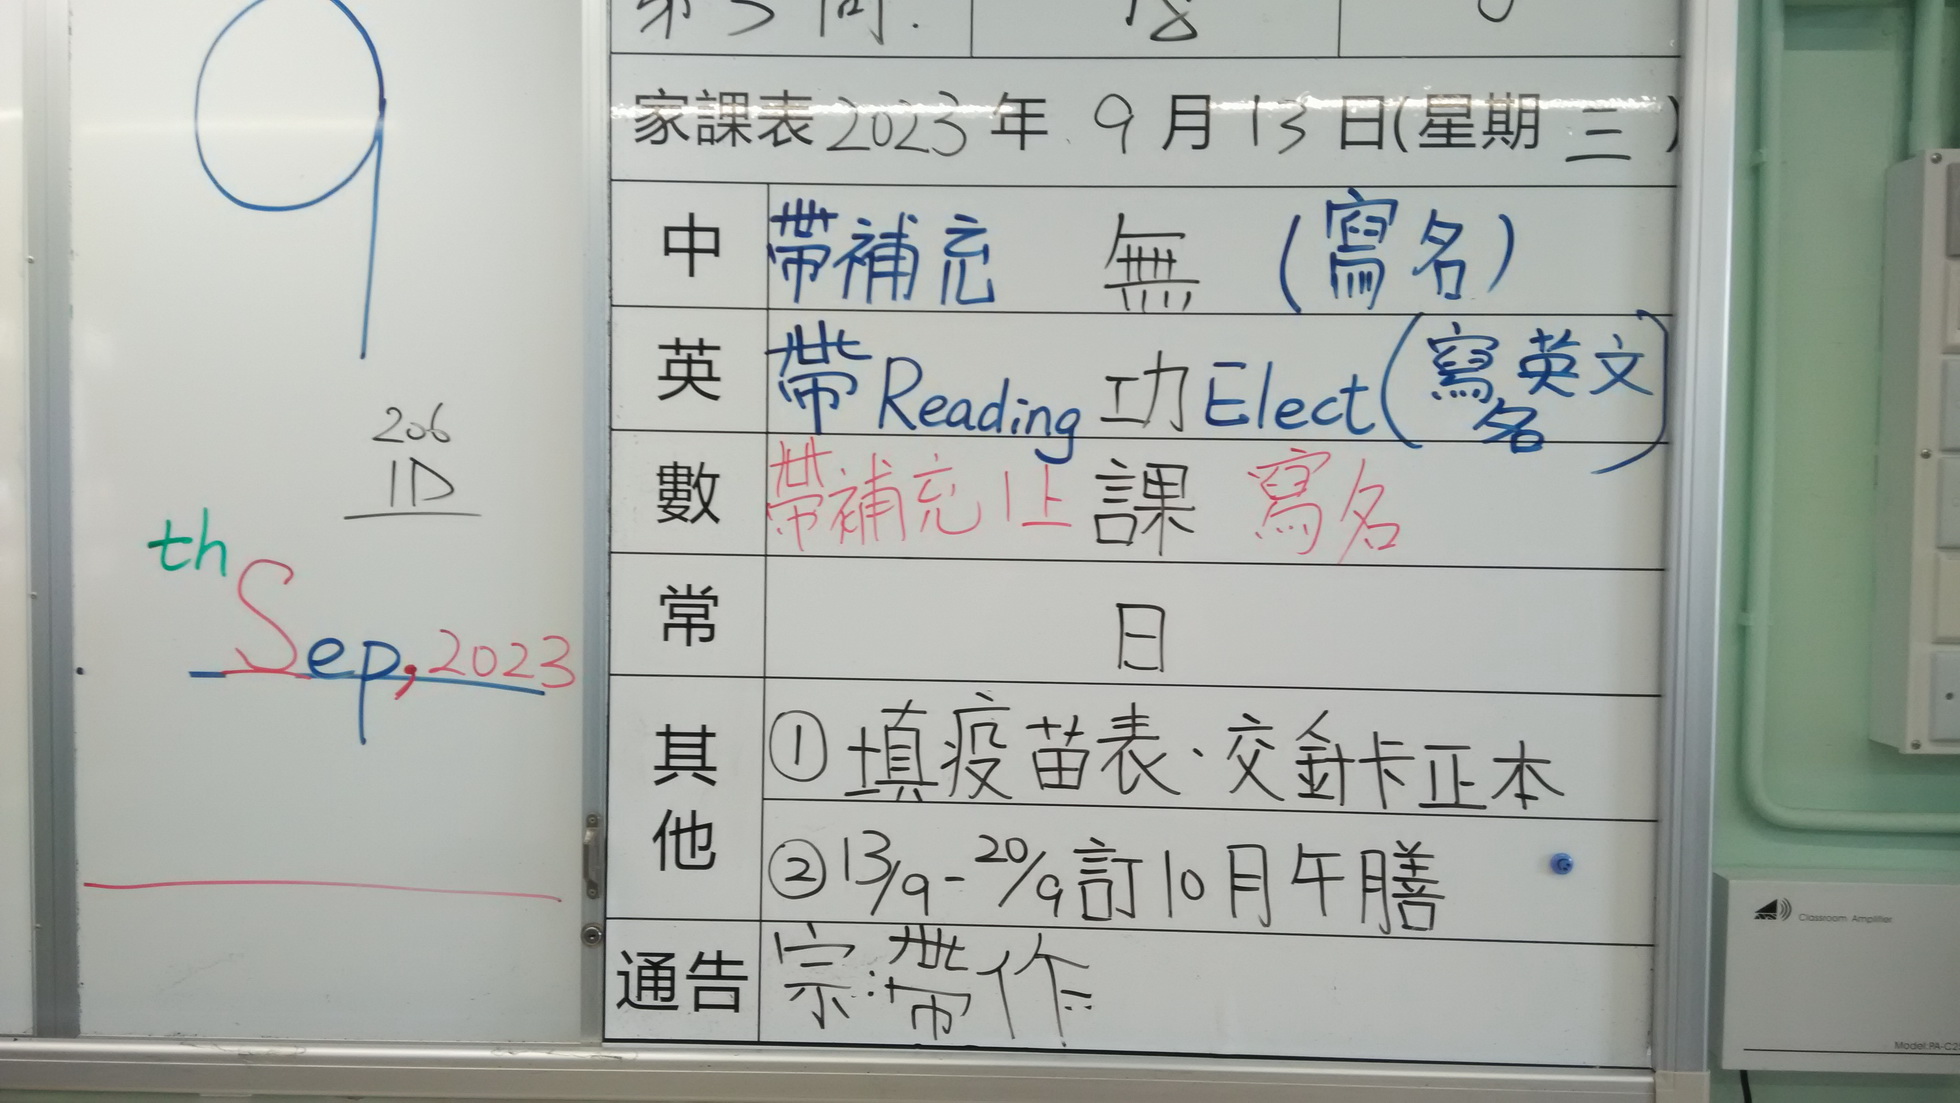 9
206
1D
th
Sep, 2023
家課表2023年 9月13日(星期三)
中 帶補充 無 (寫名)
英 帶Reading 功 Elect(寫英文名)
數 帶補充 1上 課 寫名
常 日
其他 ① 填疫苗表、交針卡正本
② 13/9-20/9訂10月午膳
通告 宗:帶作
Classroom Amplifier